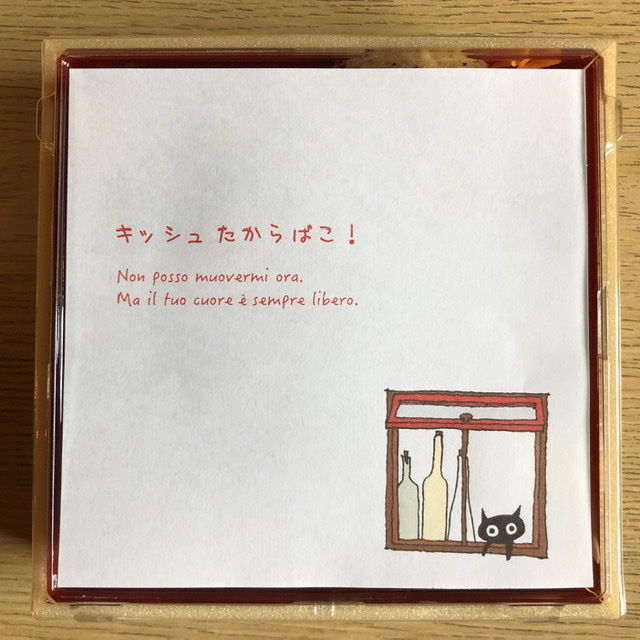 キッシュ たからばこ！
Non posso muovermi ora.
Ma il tuo cuore è sempre libero.